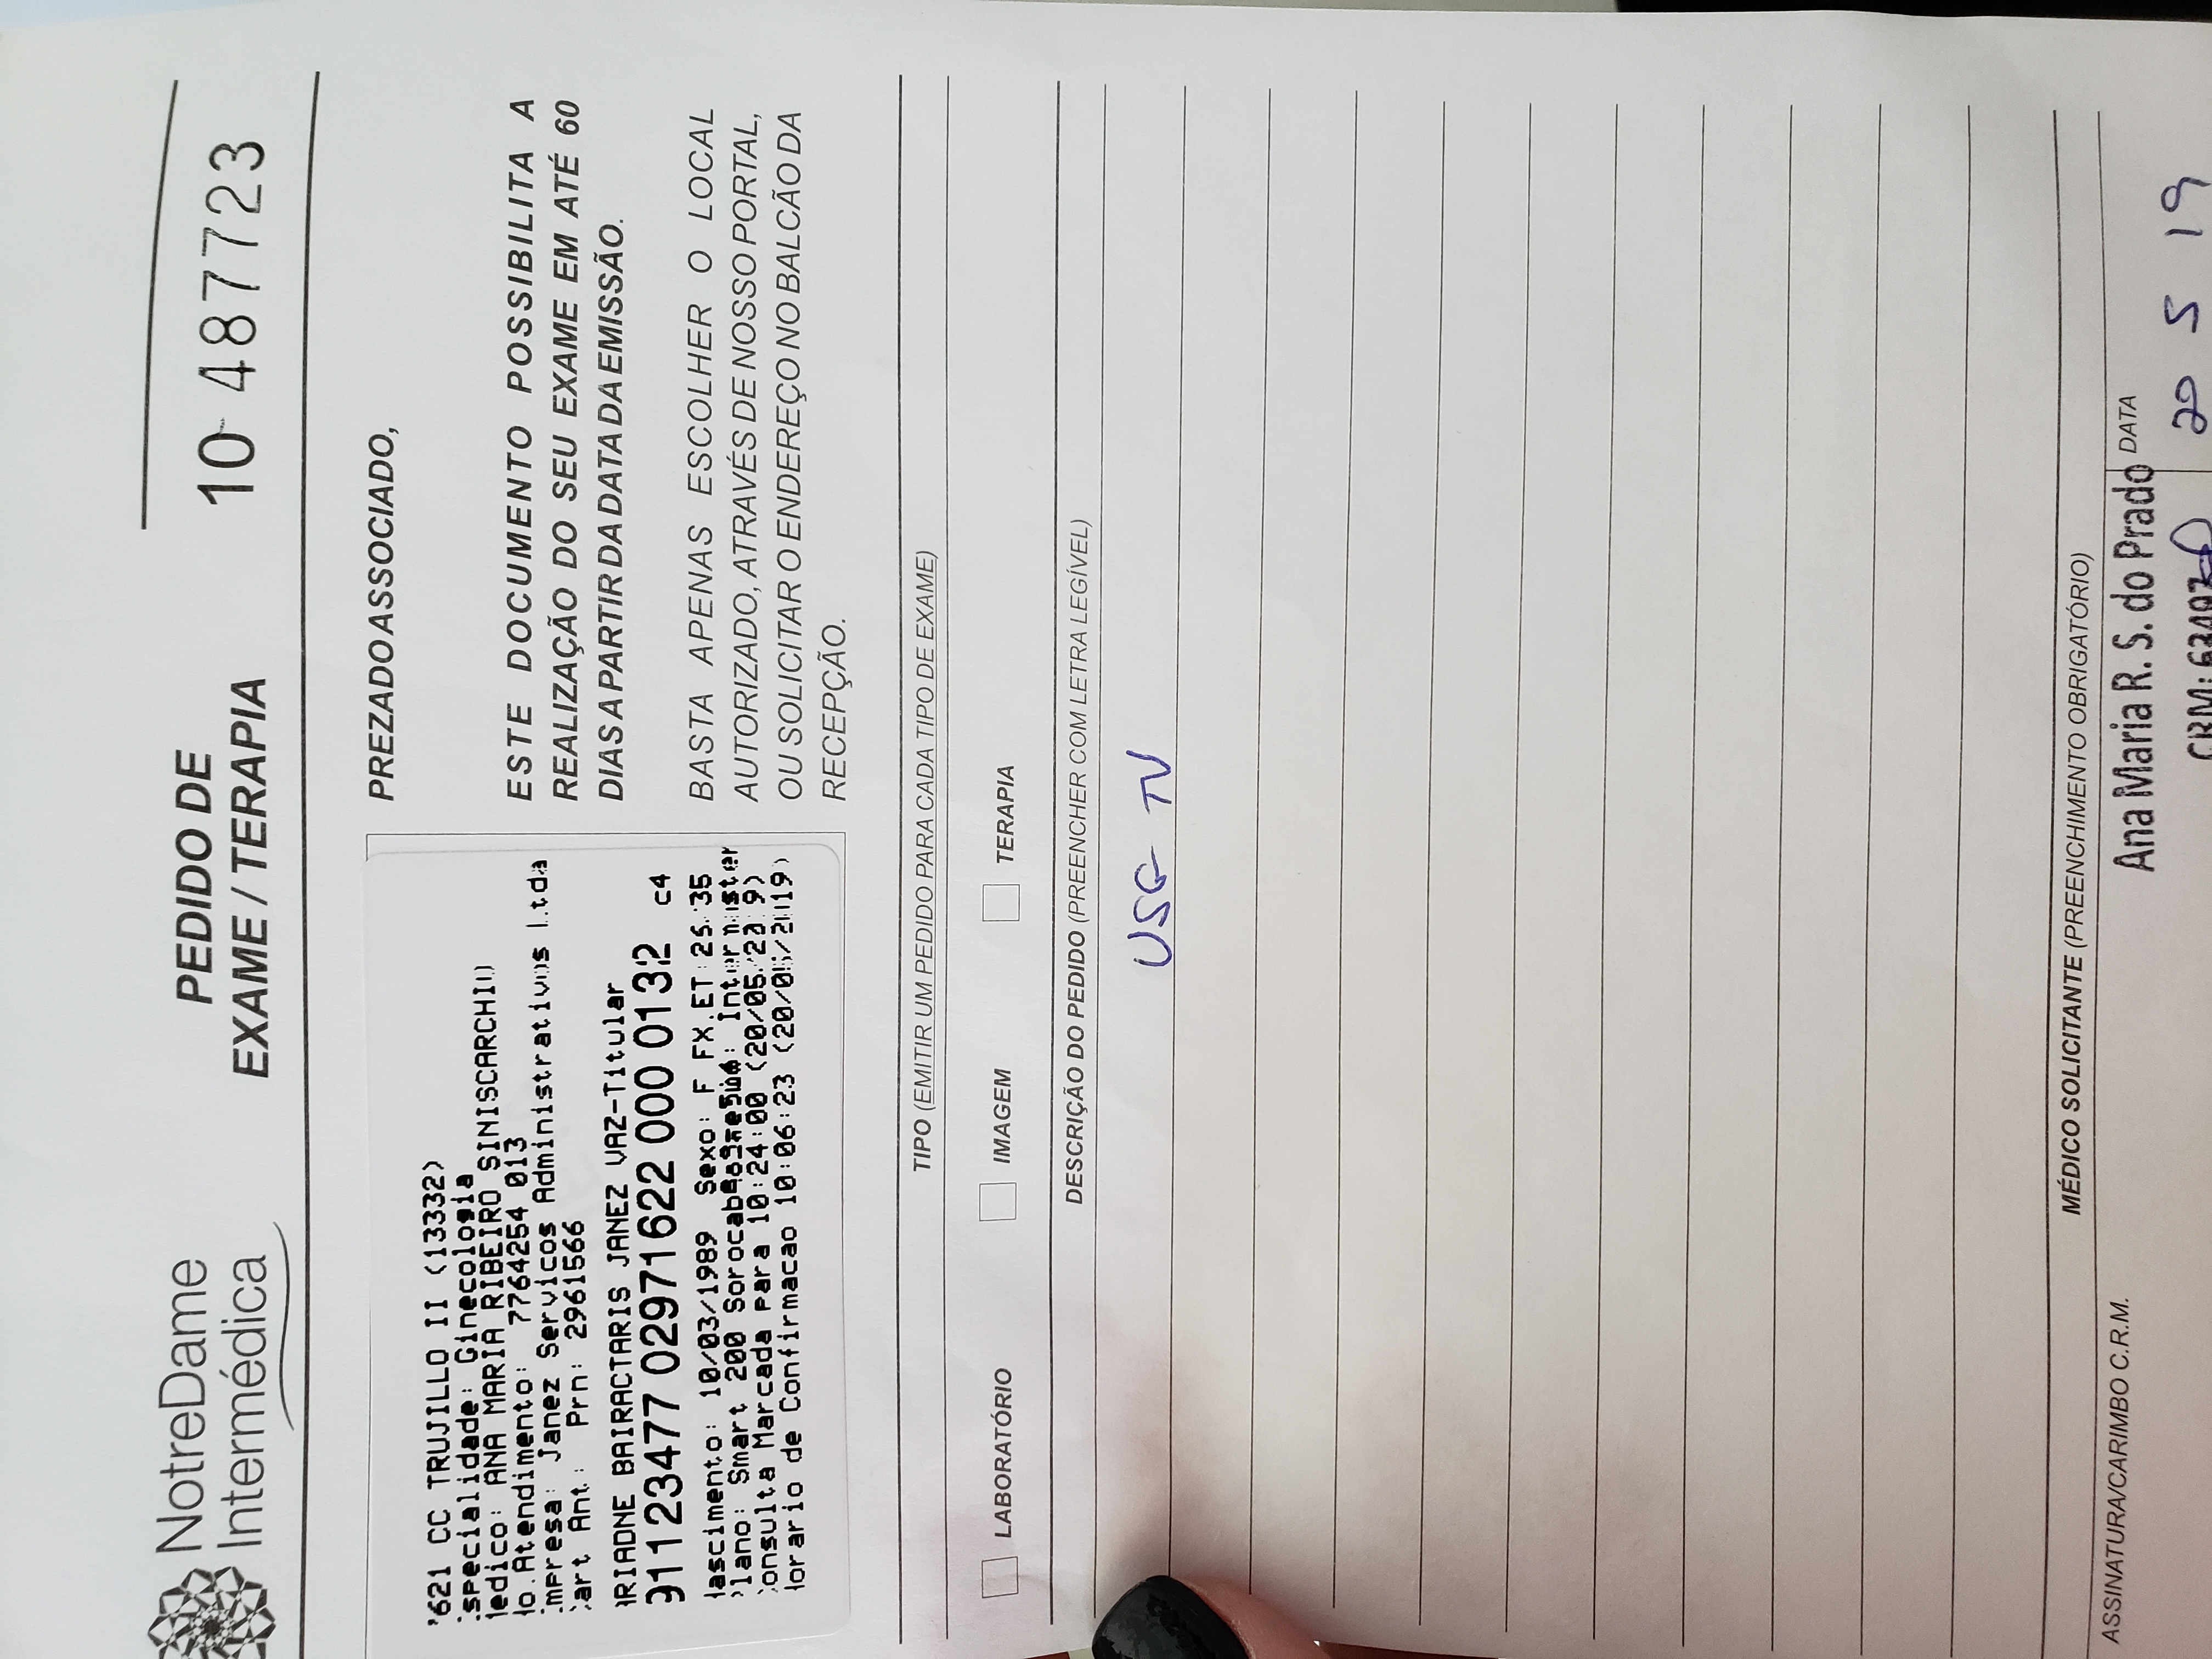 NotreDame
Intermédica
PEDIDO DE
EXAME / TERAPIA
10 487723
621 CC TRUJILLO II (13332)
specialidade: Ginecologia
edico: ANA MARIA RIBEIRO
o.Atendimento: 7764254 013
mpresa: Janez Servicos Administrativos Ltda
art Ant.: Prn: 2961566
RIADNE BAIRACTARIS JANEZ VAZ-Titular
91123477 02971622 000 0132 c4
ascimento: 10/03/1989 Sexo: F FX.ET:
lano: Smart 200
onsulta Marcada para 10:24:00
orario de Confirmacao 10:06:23
PREZADO ASSOCIADO,
ESTE DOCUMENTO POSSIBILITA A
REALIZAÇÃO DO SEU EXAME EM ATÉ 60
DIAS A PARTIR DA DATA DA EMISSÃO.
BASTA APENAS ESCOLHER O LOCAL
AUTORIZADO, ATRAVÉS DE NOSSO PORTAL,
OU SOLICITAR O ENDEREÇO NO BALCÃO DA
RECEPÇÃO.
TIPO (EMITIR UM PEDIDO PARA CADA TIPO DE EXAME)
LABORATÓRIO IMAGEM TERAPIA
DESCRIÇÃO DO PEDIDO (PREENCHER COM LETRA LEGÍVEL)
USG TV
MÉDICO SOLICITANTE (PREENCHIMENTO OBRIGATÓRIO)
ASSINATURA/CARIMBO C.R.M.
Ana Maria R. S. do Prado
DATA
CRM:
20 5 19